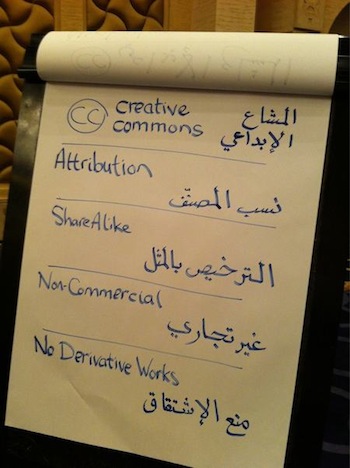 CC creative المشاع
commons الإبداعي
Attribution
نسب المصنّف
ShareAlike
الترخيص بالمثل
Non-Commercial
غير تجاري
No Derivative Works
منع الإشتقاق